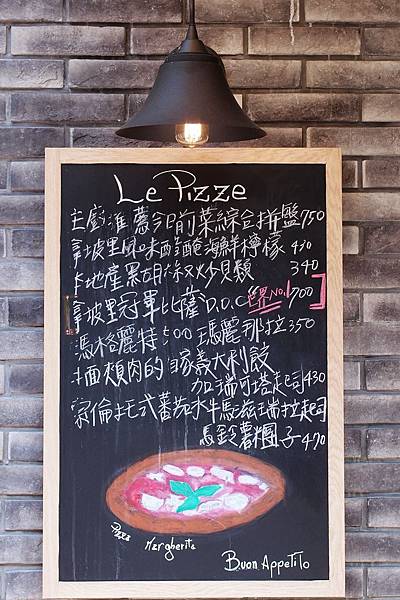 Le Pizze
主廚准薦今日前菜綜合拼盤750
拿坡里風味醋醃海鮮檸檬 430
在地產黑胡椒炒貝類 340
拿坡里冠軍比薩"D.O.C 世界No.1 700
瑪格麗特500 瑪麗那拉350
牛面頰肉的自家義大利餃
加瑞可塔起司430
索倫托式蕃茄水牛馬滋瑞拉起司
馬鈴薯糰子470
Pizza Margherita
Buon Appetito